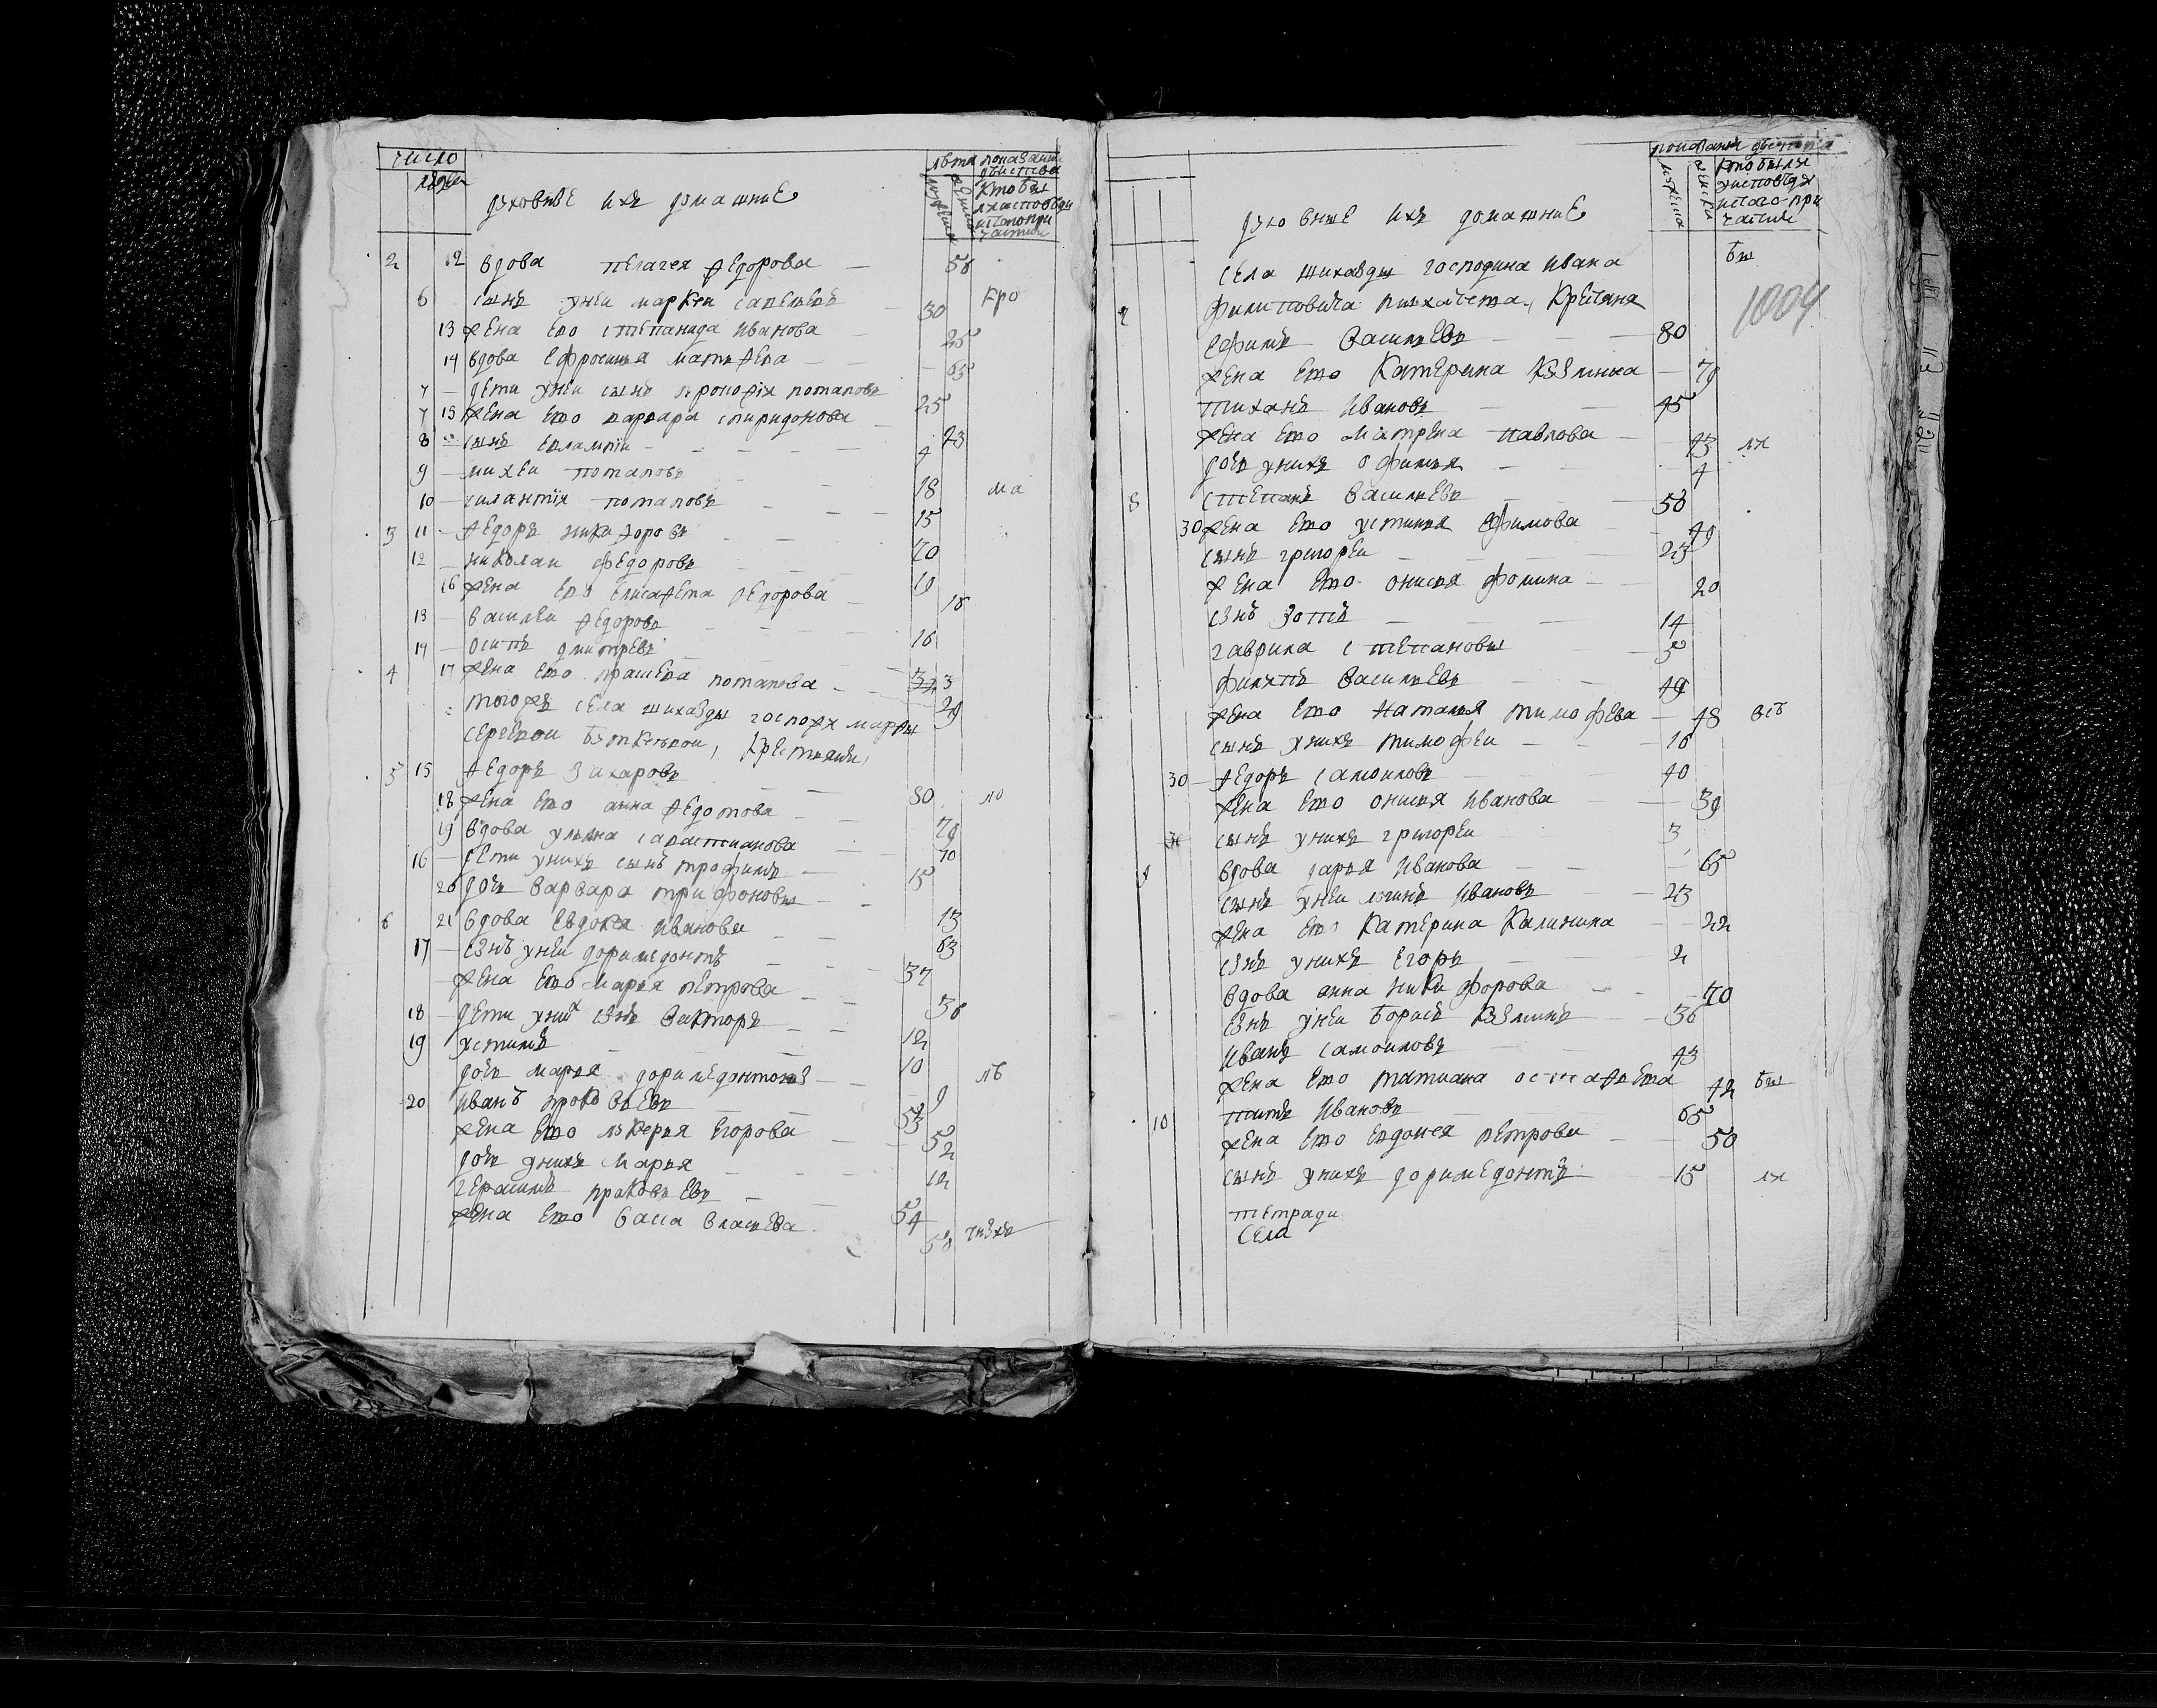 число
людей
духовные ихъ домашние
лета
показание действа
мужеска
женска
кто был
у исповеди
и с того при
частии
2 12 вдова пелагея Ѳедорова — 58
6 сынъ у неи маркеи савельевъ 30 кро
13 жена ево степанида Иванова — 25
14 вдова Ефросинья матвѣева — 63
7 — дети у неи сынъ прокофiи потаповъ 25
7 15 жена ево варвара спиридонова 23
8 — сынъ евлампiи — 4
9 — михеи потаповъ 18
10 — силантiи потаповъ 15 ма
3 11 — Ѳедоръ никаѳоровъ 70
12 — николаи Федоровъ 19
16 жена ево елисавета Ѳедорова 18
13 — василеи Ѳедоровъ 16
14 — осипъ дмитревъ
4 17 жена ево прасковя потапова 29
тогожъ села шихавды госпожи марѳы
сергевои крестьяни,
5 15 Ѳедоръ Захаровъ 80 ло
18 жена ево анна Ѳедотова 79
19 вдова ульяна савастианова 70
16 — дети у нихъ сынъ трофимъ 15
20 дочь варвара трифоновы 13
6 21 вдова Евдокея Иванова 63
17 — сэнъ у неи доримедонтъ 37
жена ево марья петрова 36
18 — дети у них сэнъ викторъ 12
19 устинъ 10
дочь марья доримедонтова 9 лѣ
20 Иванъ проковьевъ 53
жена ево лукерья Егорова 52
дочь у нихъ марья 12
герасимъ праковьевъ 54
жена ево васа власьева 50
духовные ихъ домашние
показание действа
мужеска
женска
кто были
у исповеди
и с того при
частии
бы
1004
села шихавды господина Ивана
Филиповича крестяня
7 ефимъ Васильевъ — 80
жена ево Катерина Кэзмина — 79
тиханъ Ивановъ — 45
жена ево матрена павлова — 43 ли
дочь у нихъ офимья — 4
8 степанъ васильевъ — 50
30 жена ево устинья ефимова — 49
сынъ григореи — 23
жена ево онисья фомина — 20
сэнъ Зотъ — 14
гаврила степановы — 5
филипъ васильевъ — 49
жена ево наталья тимофева — 48 всѣ
сынъ у нихъ тимофеи — 16
30 — Ѳедоръ самоиловъ 40
жена ево онисья Иванова — 39
сынъ у нихъ григореи 3
9 вдова дарья Иванова — 65
сынъ у неи логинъ Ивановъ — 23
жена ево Катерина Калинина — 22
сэнъ у нихъ Егоръ 2
вдова анна никифорова — 70
сэнъ у неи борисъ Кэзминъ — 36
Иванъ самоиловъ — 43
жена ево татиана остаѳьева 42 бы
10 титъ Ивановъ 65
жена ево евдокея петрова — 50
сынъ у нихъ доримедонтъ — 15 ли
тетради
села